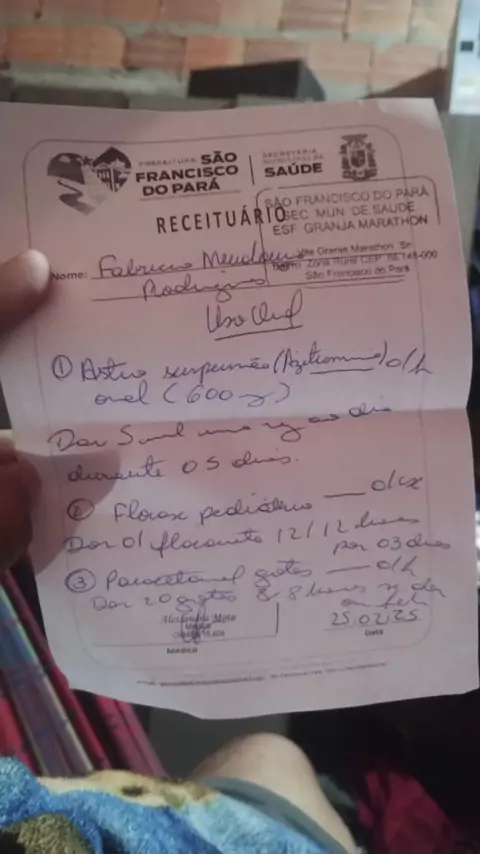 PREFEITURA SÃO
FRANCISCO
DO PARÁ
SECRETARIA
MUNICIPAL DE
SAÚDE
SÃO FRANCISCO DO PARÁ
SEC MUN DE SAUDE
ESF GRANJA MARATHON
Vila Granja Marathon Sn
Zona Rural CEP
São Francisco do Pará
RECEITUÁRIO
Nome: Fabricio
Rodrigues
Uso Oral
① Astro suspensão (Azitromicina) 01
oral (600
Dar 5 ml uma ao dia
durante 05 dias.
② Florax pediátrico — 01 cx
Dar 01 flaconete 12/12 horas
por 03 dias
③ Paracetamol gotas —
Dar 20 gotas 8 8 horas
Alessandra Mota
25.02.25
Data
MÉDICO